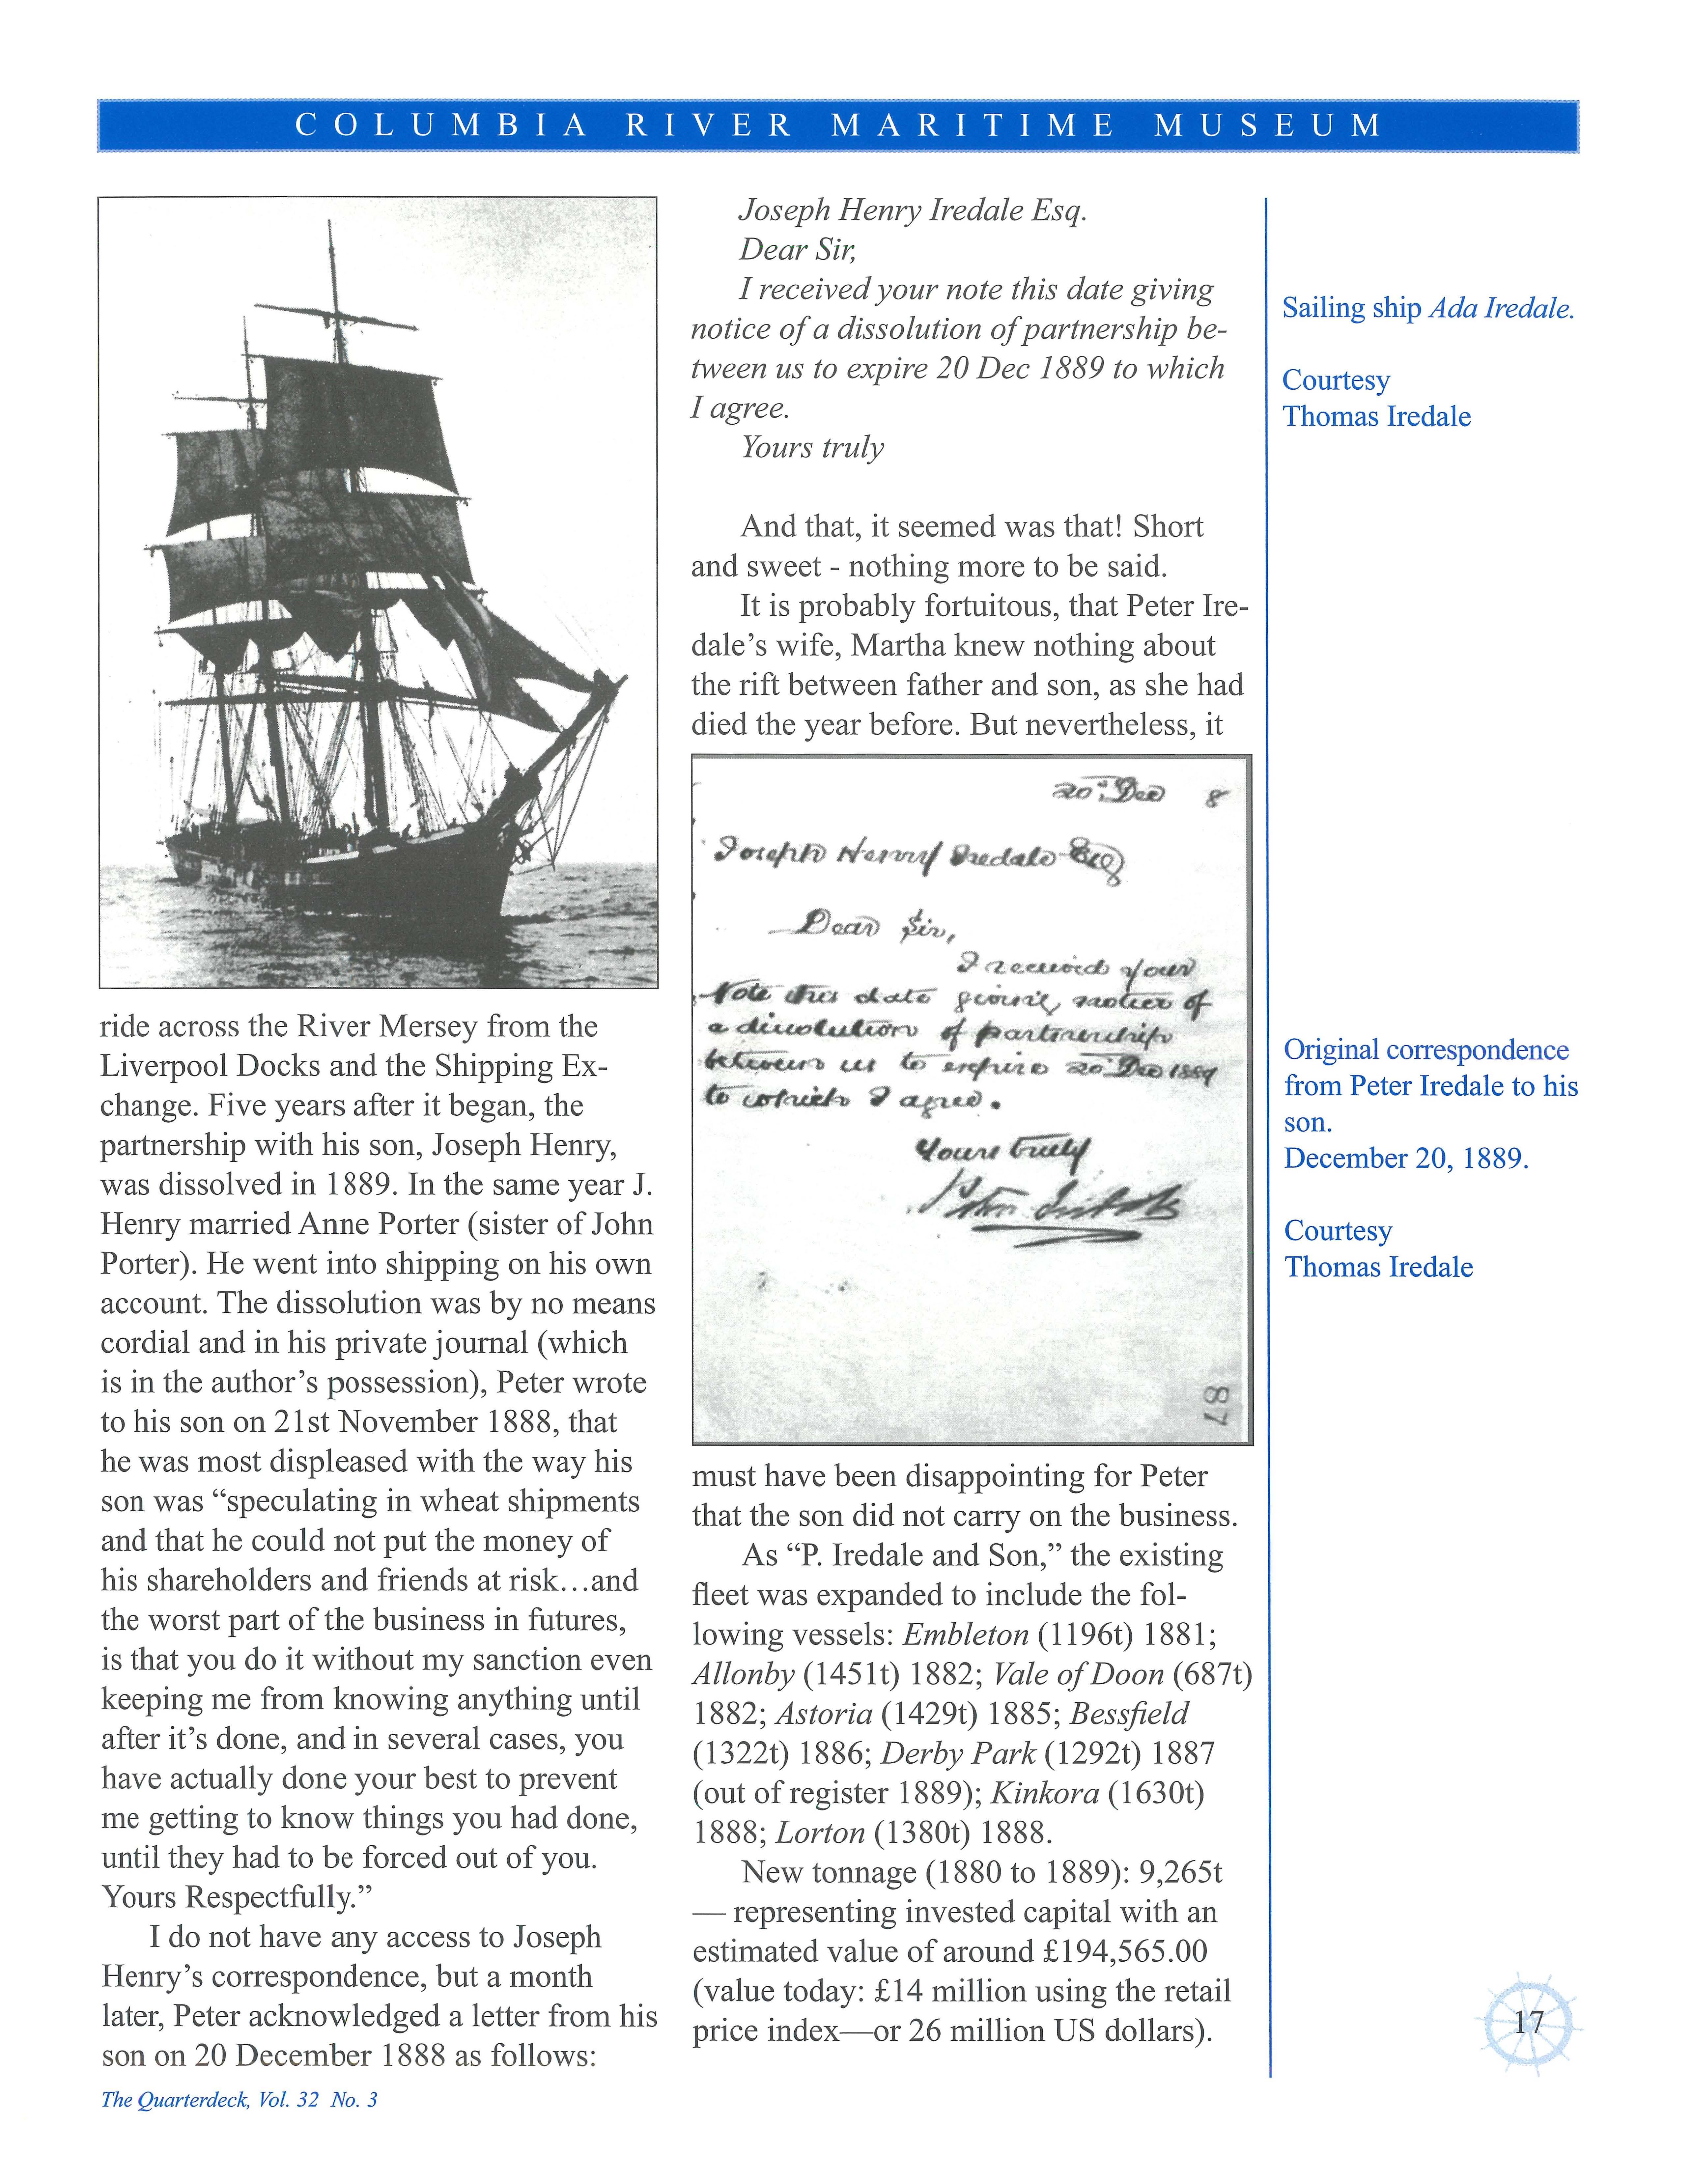 COLUMBIA RIVER MARITIME MUSEUM
ride across the River Mersey from the
Liverpool Docks and the Shipping Ex-
change. Five years after it began, the
partnership with his son, Joseph Henry,
was dissolved in 1889. In the same year J.
Henry married Anne Porter (sister of John
Porter). He went into shipping on his own
account. The dissolution was by no means
cordial and in his private journal (which
is in the author’s possession), Peter wrote
to his son on 21st November 1888, that
he was most displeased with the way his
son was “speculating in wheat shipments
and that he could not put the money of
his shareholders and friends at risk…and
the worst part of the business in futures,
is that you do it without my sanction even
keeping me from knowing anything until
after it’s done, and in several cases, you
have actually done your best to prevent
me getting to know things you had done,
until they had to be forced out of you.
Yours Respectfully.”
I do not have any access to Joseph
Henry’s correspondence, but a month
later, Peter acknowledged a letter from his
son on 20 December 1888 as follows:
Joseph Henry Iredale Esq.
Dear Sir,
I received your note this date giving
notice of a dissolution of partnership be-
tween us to expire 20 Dec 1889 to which
I agree.
Yours truly
And that, it seemed was that! Short
and sweet - nothing more to be said.
It is probably fortuitous, that Peter Ire-
dale’s wife, Martha knew nothing about
the rift between father and son, as she had
died the year before. But nevertheless, it
20th Dec 8
Joseph Henry Iredale Esq
Dear Sir,
I received your
Note this date giving notice of
a dissolution of partnership
between us to expire 20th Dec 1889
to which I agree.
Yours truly
Peter Iredale
87
must have been disappointing for Peter
that the son did not carry on the business.
As “P. Iredale and Son,” the existing
fleet was expanded to include the fol-
lowing vessels: Embleton (1196t) 1881;
Allonby (1451t) 1882; Vale of Doon (687t)
1882; Astoria (1429t) 1885; Bessfield
(1322t) 1886; Derby Park (1292t) 1887
(out of register 1889); Kinkora (1630t)
1888; Lorton (1380t) 1888.
New tonnage (1880 to 1889): 9,265t
— representing invested capital with an
estimated value of around £194,565.00
(value today: £14 million using the retail
price index—or 26 million US dollars).
Sailing ship Ada Iredale.
Courtesy
Thomas Iredale
Original correspondence
from Peter Iredale to his
son.
December 20, 1889.
Courtesy
Thomas Iredale
17
The Quarterdeck, Vol. 32 No. 3